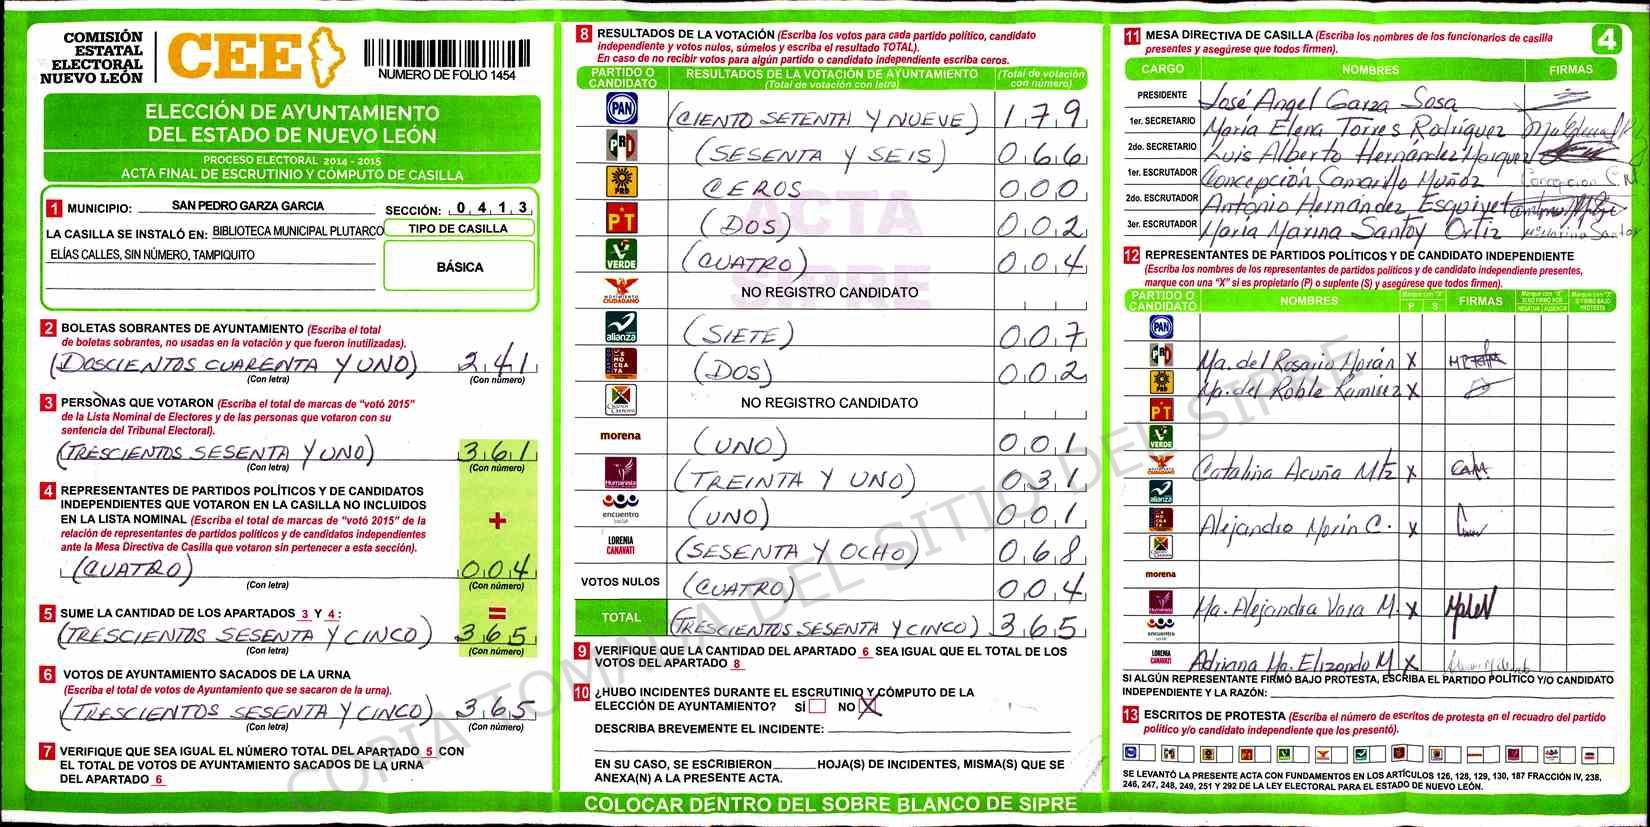 COMISIÓN
ESTATAL
ELECTORAL
NUEVO LEÓN
CEE
NUMERO DE FOLIO 1454
ELECCIÓN DE AYUNTAMIENTO
DEL ESTADO DE NUEVO LEÓN
PROCESO ELECTORAL 2014 - 2015
ACTA FINAL DE ESCRUTINIO Y CÓMPUTO DE CASILLA
1 MUNICIPIO: SAN PEDRO GARZA GARCIA SECCIÓN: 0 4 1 3
LA CASILLA SE INSTALÓ EN: BIBLIOTECA MUNICIPAL PLUTARCO
ELÍAS CALLES, SIN NÚMERO, TAMPIQUITO
TIPO DE CASILLA
BÁSICA
2 BOLETAS SOBRANTES DE AYUNTAMIENTO (Escriba el total
de boletas sobrantes, no usadas en la votación y que fueron inutilizadas).
(DOSCIENTOS CUARENTA Y UNO) 2 4 1
(Con letra) (Con número)
3 PERSONAS QUE VOTARON (Escriba el total de marcas de “votó 2015”
de la Lista Nominal de Electores y de las personas que votaron con su
sentencia del Tribunal Electoral).
(TRESCIENTOS SESENTA Y UNO) 3 6 1
(Con letra) (Con número)
4 REPRESENTANTES DE PARTIDOS POLÍTICOS Y DE CANDIDATOS
INDEPENDIENTES QUE VOTARON EN LA CASILLA NO INCLUIDOS
EN LA LISTA NOMINAL (Escriba el total de marcas de “votó 2015” de la
relación de representantes de partidos políticos y de candidatos independientes
ante la Mesa Directiva de Casilla que votaron sin pertenecer a esta sección).
+
(CUATRO) 0 0 4
(Con letra) (Con número)
5 SUME LA CANTIDAD DE LOS APARTADOS 3 Y 4 : =
(TRESCIENTOS SESENTA Y CINCO) 3 6 5
(Con letra) (Con número)
6 VOTOS DE AYUNTAMIENTO SACADOS DE LA URNA
(Escriba el total de votos de Ayuntamiento que se sacaron de la urna).
(TRESCIENTOS SESENTA Y CINCO) 3 6 5
(Con letra) (Con número)
7 VERIFIQUE QUE SEA IGUAL EL NÚMERO TOTAL DEL APARTADO 5 CON
EL TOTAL DE VOTOS DE AYUNTAMIENTO SACADOS DE LA URNA
DEL APARTADO 6
8 RESULTADOS DE LA VOTACIÓN (Escriba los votos para cada partido político, candidato
independiente y votos nulos, súmelos y escriba el resultado TOTAL).
En caso de no recibir votos para algún partido o candidato independiente escriba ceros.
PARTIDO O CANDIDATO RESULTADOS DE LA VOTACIÓN DE AYUNTAMIENTO (Total de votación con letra) (Total de votación con número)
PAN (CIENTO SETENTA Y NUEVE) 1 7 9
PRD (SESENTA Y SEIS) 0 6 6
PRD CEROS 0 0 0
PT (DOS) 0 0 2
VERDE (CUATRO) 0 0 4
MOVIMIENTO CIUDADANO NO REGISTRO CANDIDATO
alianza (SIETE) 0 0 7
DEMOCRATA (DOS) 0 0 2
NO REGISTRO CANDIDATO
morena (UNO) 0 0 1
Humanista (TREINTA Y UNO) 0 3 1
encuentro social (UNO) 0 0 1
LORENIA CANAVATI (SESENTA Y OCHO) 0 6 8
VOTOS NULOS (CUATRO) 0 0 4
TOTAL (TRESCIENTOS SESENTA Y CINCO) 3 6 5
ACTA
SIPRE
9 VERIFIQUE QUE LA CANTIDAD DEL APARTADO 6 SEA IGUAL QUE EL TOTAL DE LOS
VOTOS DEL APARTADO 8
10 ¿HUBO INCIDENTES DURANTE EL ESCRUTINIO Y CÓMPUTO DE LA
ELECCIÓN DE AYUNTAMIENTO? SÍ NO X
DESCRIBA BREVEMENTE EL INCIDENTE:
EN SU CASO, SE ESCRIBIERON HOJA(S) DE INCIDENTES, MISMA(S) QUE SE
ANEXA(N) A LA PRESENTE ACTA.
COLOCAR DENTRO DEL SOBRE BLANCO DE SIPRE
COPIA TOMADA DEL SITIO DEL SIPRE
11 MESA DIRECTIVA DE CASILLA (Escriba los nombres de los funcionarios de casilla
presentes y asegúrese que todos firmen).
4
CARGO NOMBRES FIRMAS
PRESIDENTE José Angel Garza Sosa
1er. SECRETARIO María Elena Torres Rodríguez
2do. SECRETARIO Luis Alberto Hernández Marquez
1er. ESCRUTADOR Concepción Camarillo Muñoz Concepcion C.M.
2do. ESCRUTADOR Antonio Hernández Esquivel
3er. ESCRUTADOR María Marina Santoy Ortiz Ma Marina Santoy
12 REPRESENTANTES DE PARTIDOS POLÍTICOS Y DE CANDIDATO INDEPENDIENTE
(Escriba los nombres de los representantes de partidos políticos y de candidato independiente presentes,
marque con una “X” si es propietario (P) o suplente (S) y asegúrese que todos firmen).
PARTIDO O CANDIDATO NOMBRES Marque con "X" P S FIRMAS
PAN
PRD Ma. del Rosario Morán X
PRD Ma. del Roble Ramirez X
PT
VERDE
Catalina Acuña Mtz X
alianza
Alejandro Morin C. X
morena
Humanista Ma. Alejandra Vara M. X
encuentro social
LORENIA CANAVATI Adriana Ma. Elizondo M X
SI ALGÚN REPRESENTANTE FIRMÓ BAJO PROTESTA, ESCRIBA EL PARTIDO POLÍTICO Y/O CANDIDATO
INDEPENDIENTE Y LA RAZÓN:
13 ESCRITOS DE PROTESTA (Escriba el número de escritos de protesta en el recuadro del partido
político y/o candidato independiente que los presentó).
SE LEVANTÓ LA PRESENTE ACTA CON FUNDAMENTOS EN LOS ARTÍCULOS 126, 128, 129, 130, 187 FRACCIÓN IV, 238,
246, 247, 248, 249, 251 Y 292 DE LA LEY ELECTORAL PARA EL ESTADO DE NUEVO LEÓN.